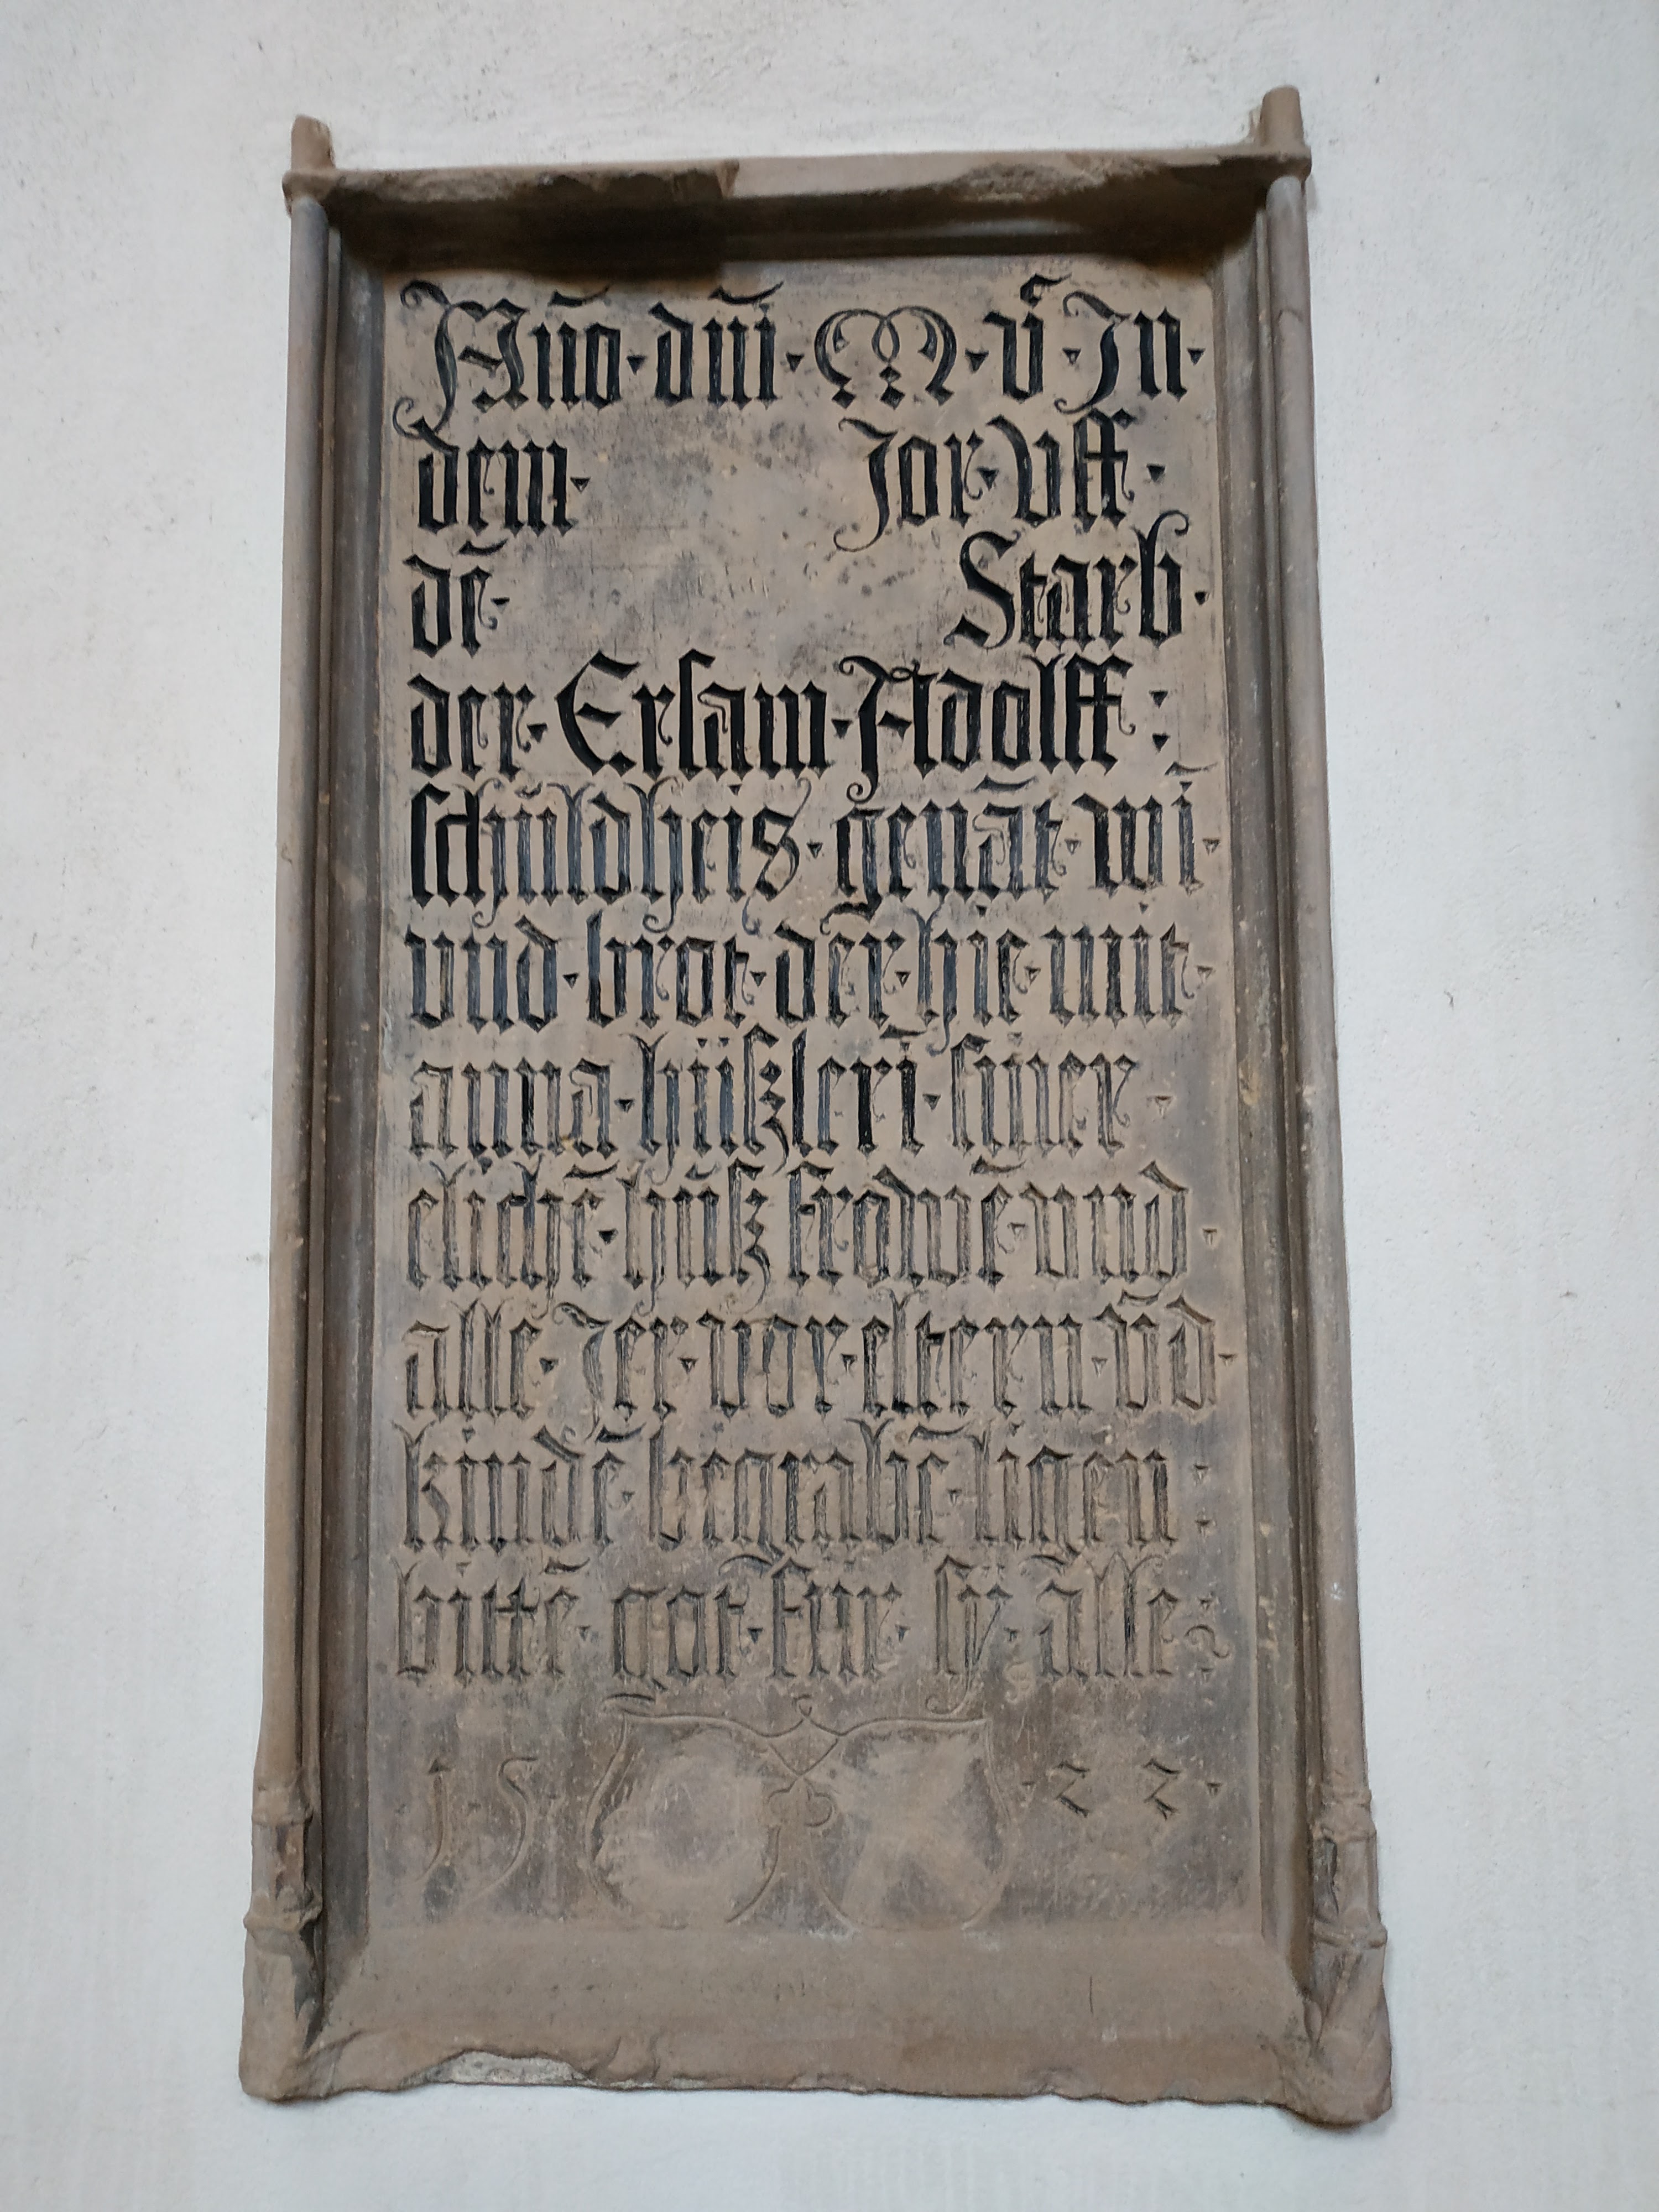 Año · dñi · M · vͨ · Jn ·
dem · Jor · Vff ·
dē · Starb ·
der · Ersam · Adolff :
schůldheis · genāt · wī ·
vnd · brot · der · hie · mit ·
anna · hüszlerī · siner ·
elichē · hůsz frowē · vnd ·
alle · Jer · vor · eltern · vñd ·
kindē · begrabē · ligen :
bittē · got · für · sÿ · alle :
1 · 5 · · 2 2 ·